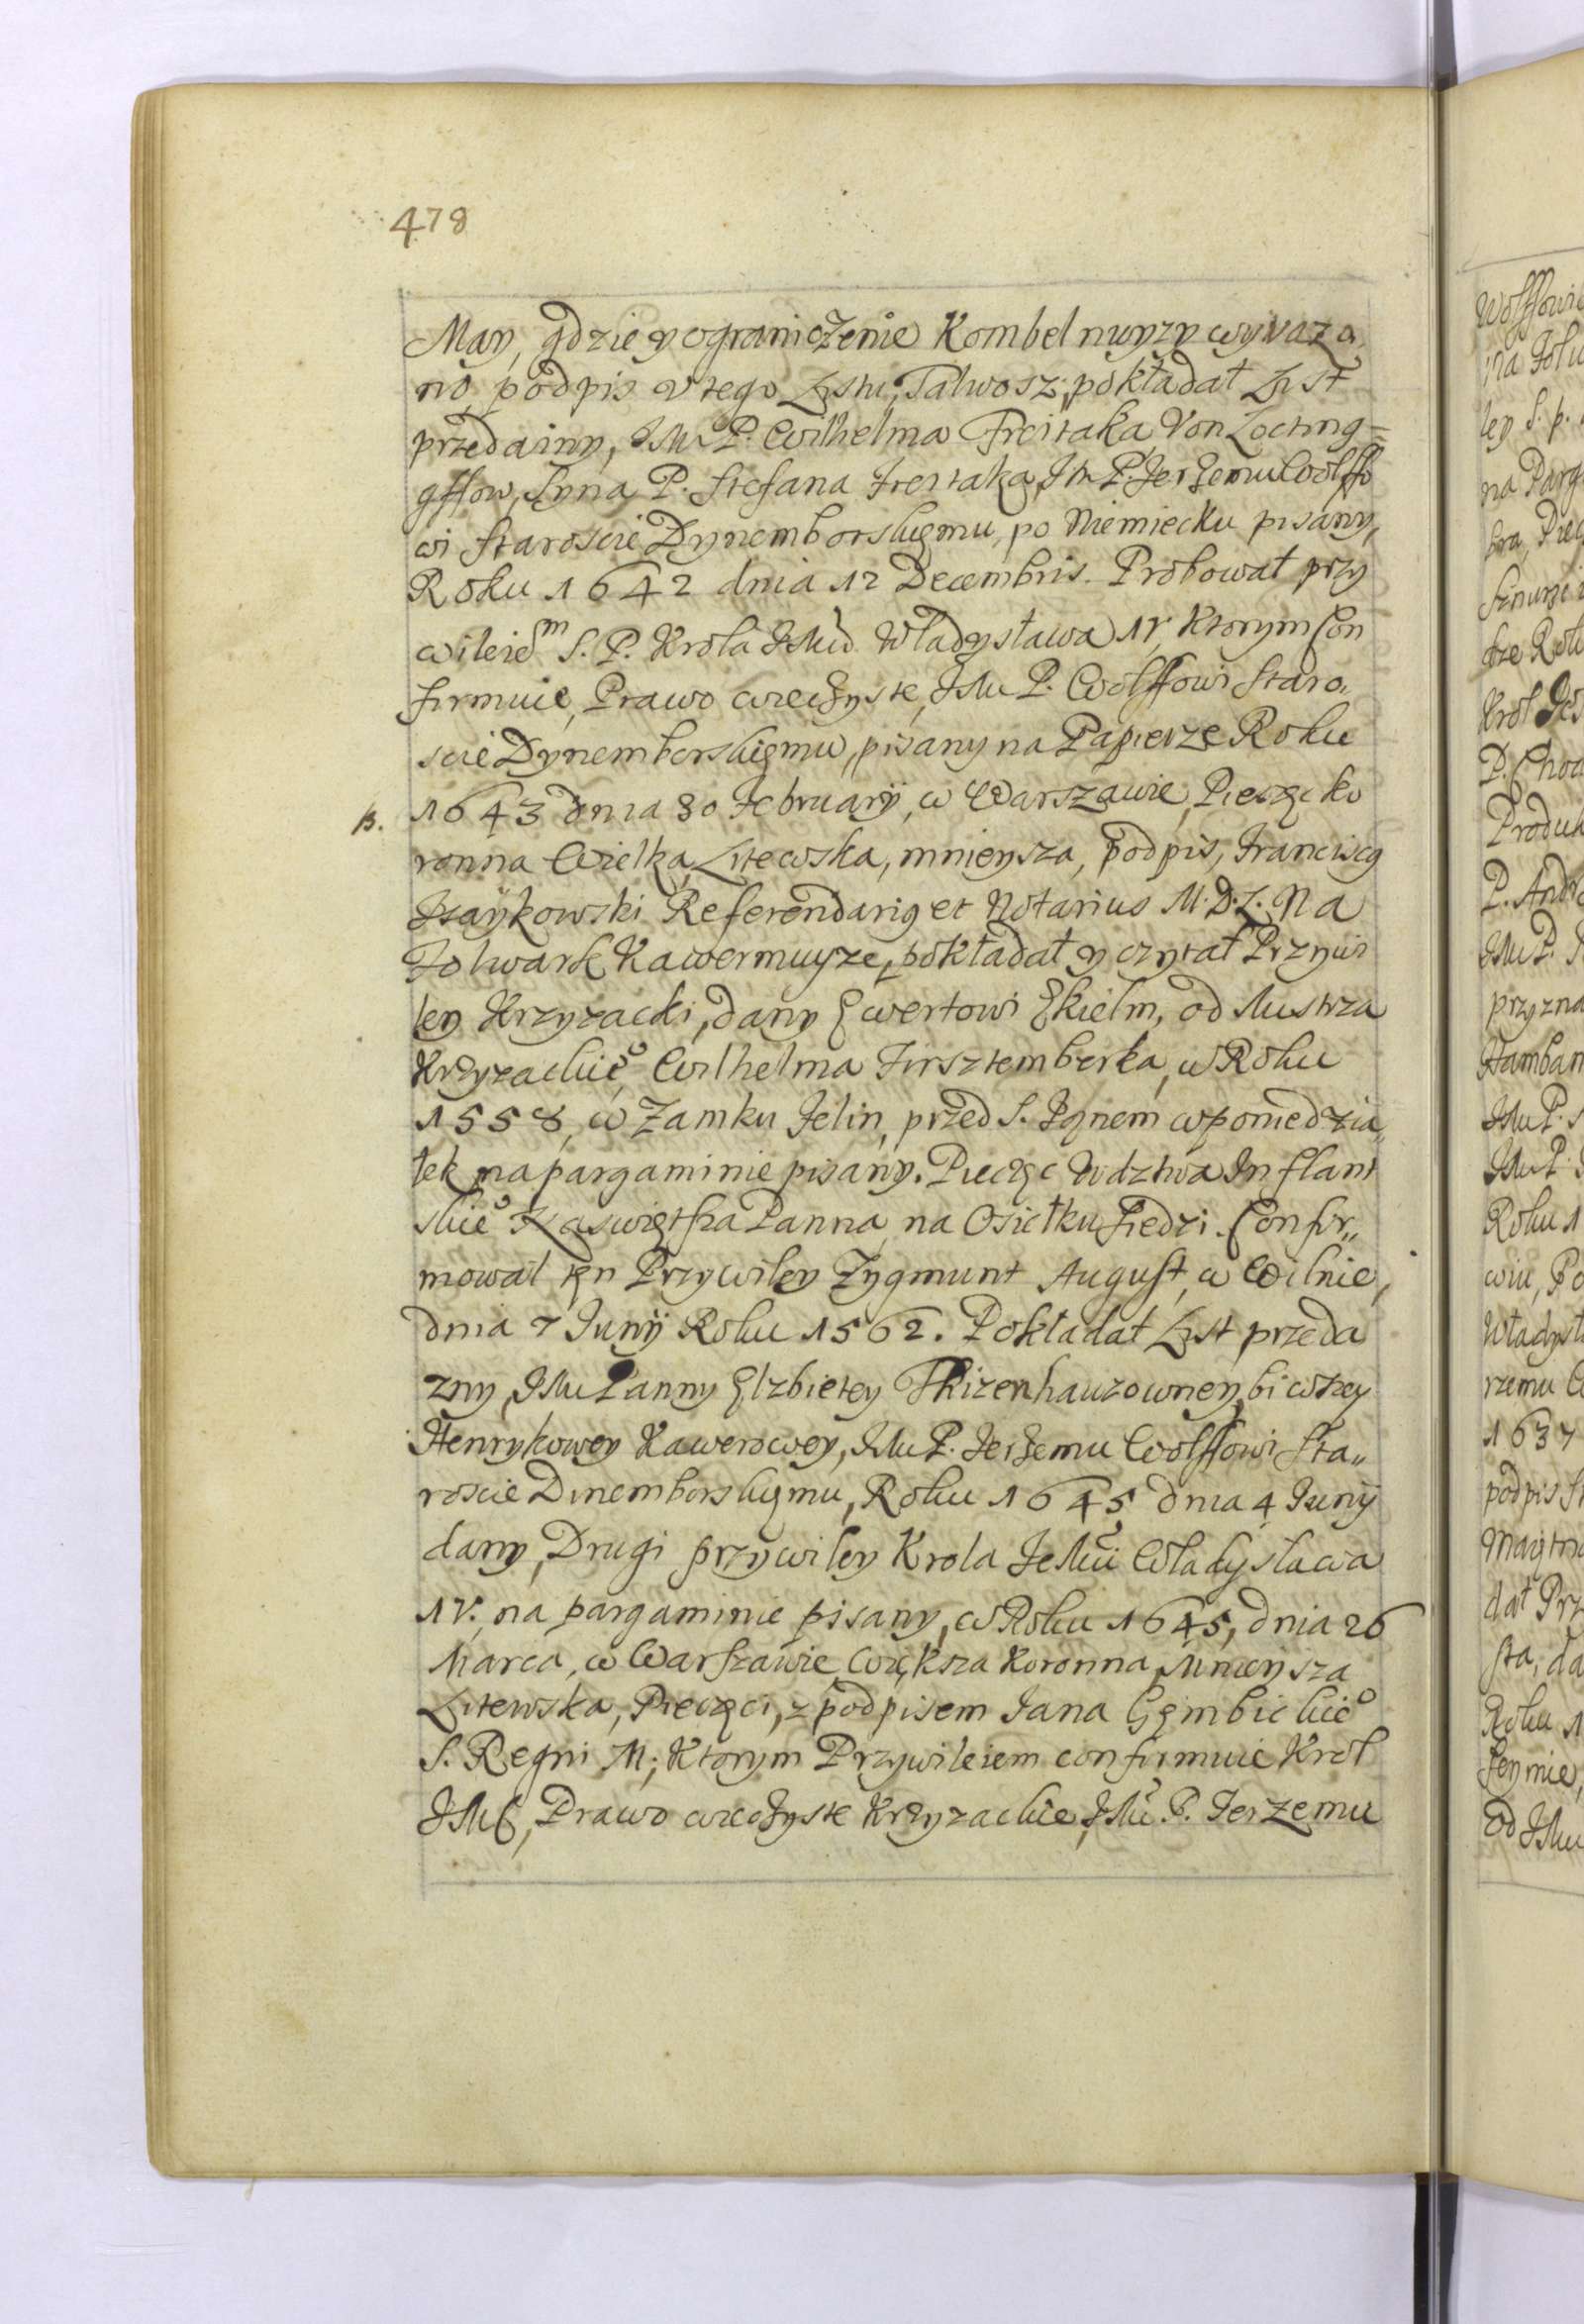 478
May, gdzie y ograniczenie Kombelnuyzy wyraza
no, podpis v tego Listu, Talwosz, pokładał List
przedainy, JMP. Wilhelma Freitaka Von Locting=
gffow, Syna P. Stefana Freitaka, JM P. Jerzemu Wolffo
wi Staroscie Dynemborskięmu, po Niemiecku pisany,
Roku 1642 dnia 12 Decembris. Probował przy
wileiem S. P. Krola JMći Władysława IV, Ktorym Con
firmuie, Prawo wieczyste, JMu P. Wolffowi Staro„
scie Dynemborskięmu, pisany na Papierze Roku
13. 1643 dnia 30 February, w Warszawie, Pieczęć ko
ronna Wielka, Litewska, mnieysza, podpis, Franciscg
Isaykowski Referendarig et Notarius M.D.L. Na
Folwark Kawermuyze, pokładał y czytał Przywi
ley Krzyzacki, dany Ewertowi Ekielm, od Mistrza
Krzyzackieo Wilhelma Firsztemberka, w Roku
1558, w Zamku Felin, przed S. Ignem w poniedzia„
łek, na pargaminie pisany. Pieczęc Wdztwa Inflant
skieo Naswiętsza Panna, na Osiełku siedzi. Confir„
mował ten Przywiley Zygmunt August, w Wilnie,
dnia 7 Juny Roku 1562. Pokładał List przeda
zny, JMu Panny Elzbietey Thizenhauzowney, biwszey
Henrykowey Kawerowey, JMu P. Jerzemu Wolffowi Sta„
roscie Dinemborskięmu, Roku 1645 dnia 4 Juny
dany, Drugi przywiley Krola JeMći Władysława
IV. na pargaminie pisany, w Roku 1645, dnia 26
Marca, w Warszawie, Większa Koronna, Mnieysza
Litewska, Pieczęci, z podpisem Jana Gęmbickieo
S. Regni M; Ktorym Przywileiem confirmuie Krol
JMć, Prawo wieczyste Krzyzackie, JMć P. Jerzemu